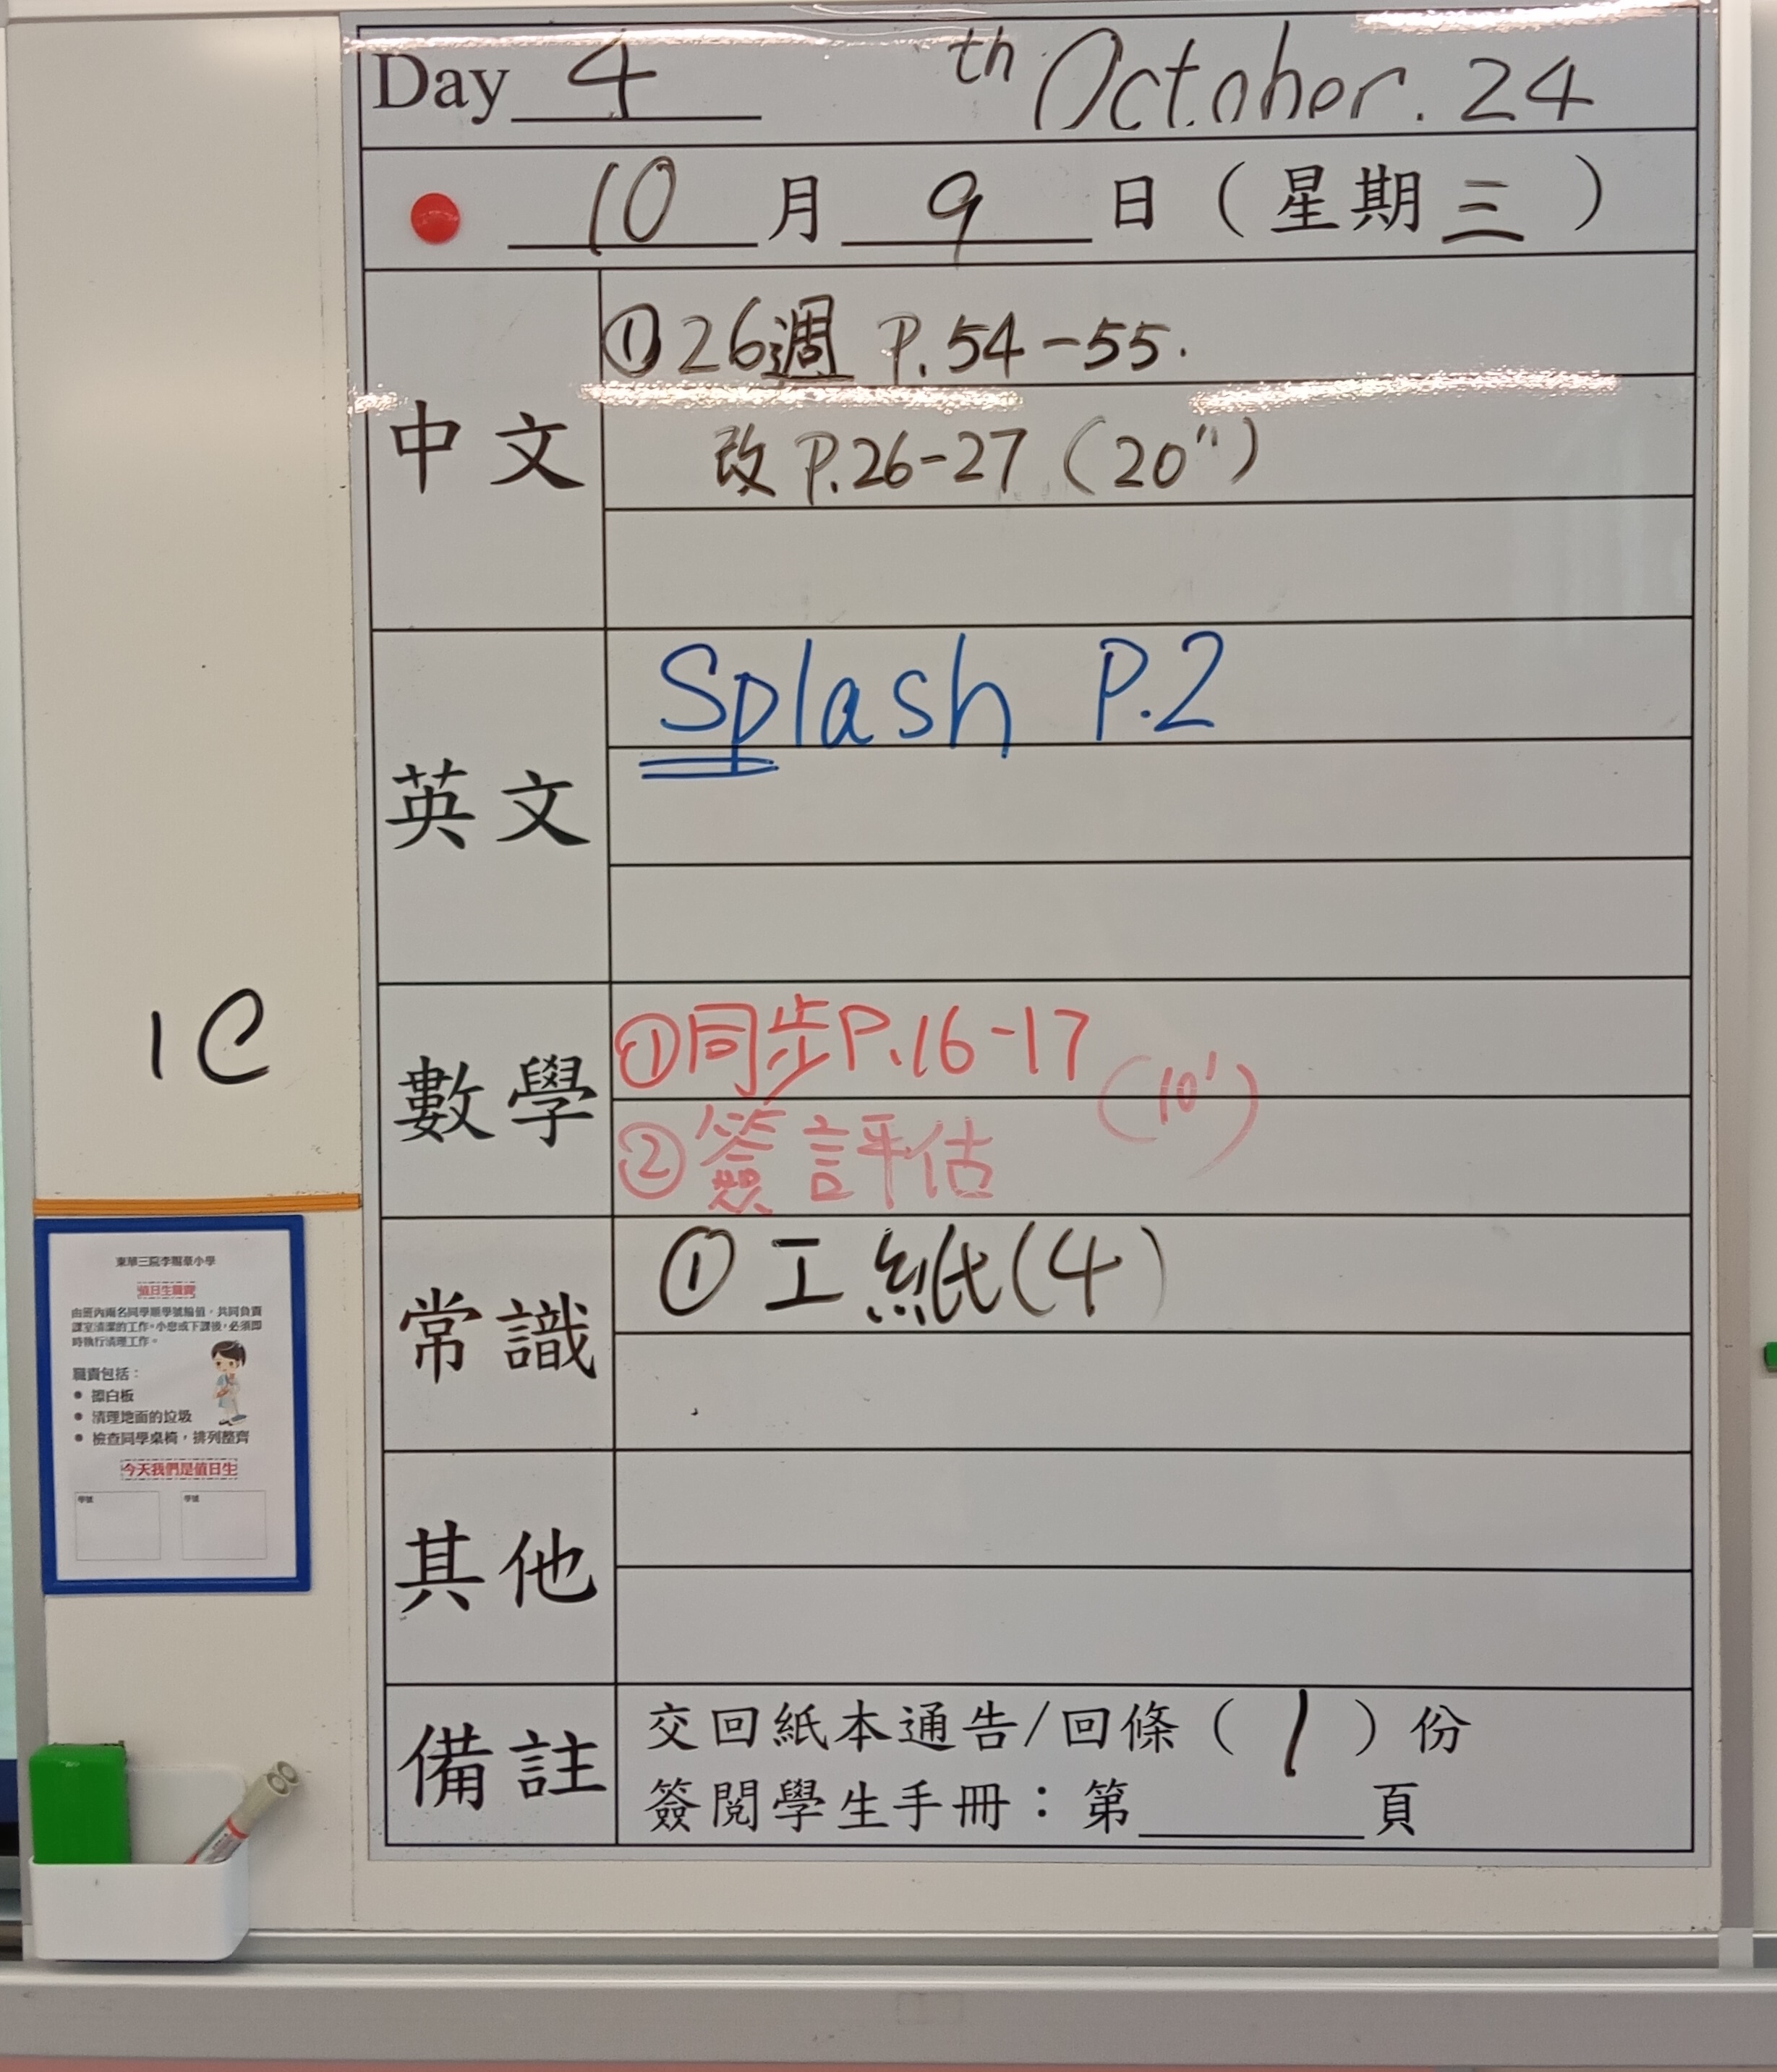 Day 4 th October. 24
10 月 9 日 ( 星期三 )
中文
①26週 P.54-55.
改 P.26-27 (20")
英文
Splash P.2
數學
①同步P.16-17
(10')
②簽評估
常識
①工紙(4)
其他
備註
交回紙本通告/回條 ( 1 ) 份
簽閱學生手冊:第______頁
1C
東華三院李賜豪小學
值日生職責
由班內兩名同學順學號輪值,共同負責
課室清潔的工作。小息或下課後,必須即
時執行清理工作。
職責包括:
● 擦白板
● 清理地面的垃圾
● 檢查同學桌椅,排列整齊
今天我們是值日生
學號 學號